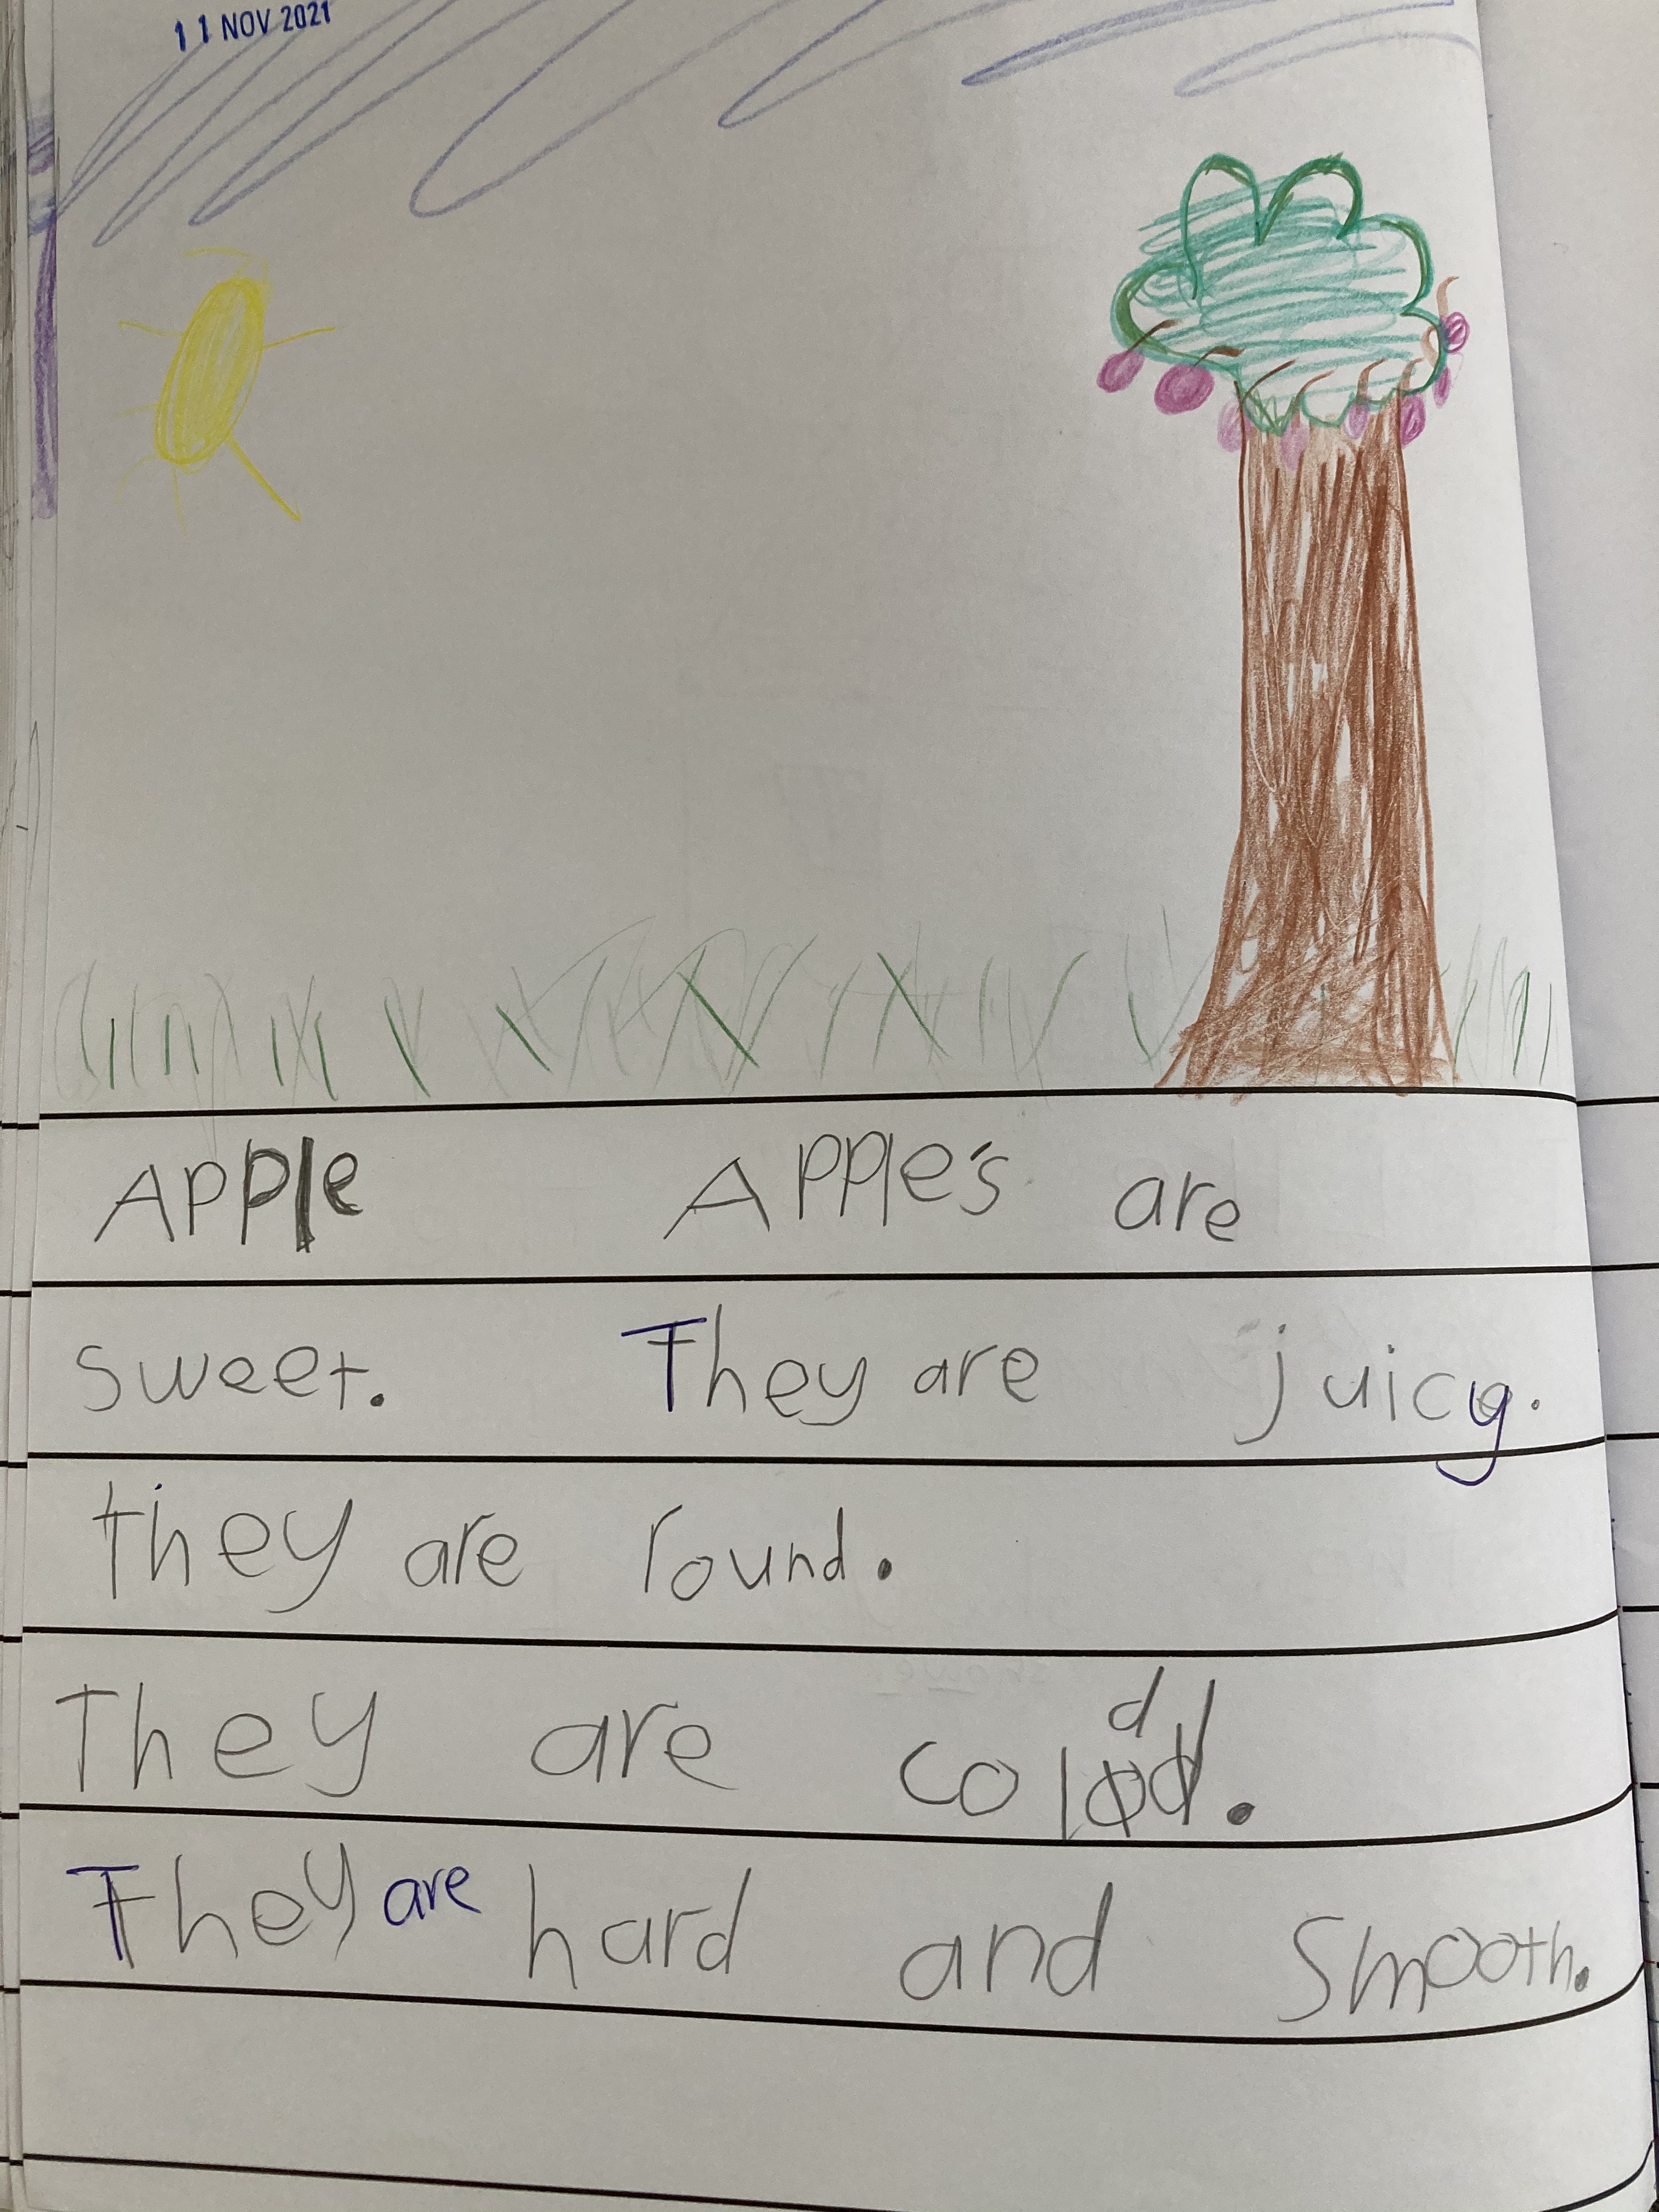 11 NOV 2021
Apple Apple's are
sweet. They are juicy.
they are round.
They are cold.
They are hard and smooth.